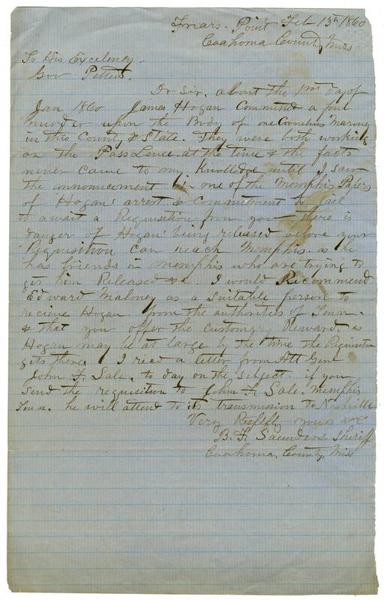 Friars. Point Feb 13th 1860
Coahoma County, Miss
To His Excelency
Gov Pettus.
Dr Sir, about the 1st day of
Jan 1860 James Hogan Committed a foul
Murder upon the Body of one Cornelius
in this County & State. They were both working
on the Pass Levee. at the time & the facts
never came to my Knolledge until I saw
the announcement in one of the Memphis Papers
of Hogan arrest & Commitment to Jail
to await a Requisition from you there is
danger of Hogan being released before your
Requisition can reach Memphis as he
has friends in Memphis who are trying to
get him Released &c. I would Recommend
Edward Maloney as a Suitable person to
recieve Hogan from the authorities of Tenn.
& that you offer the Customary Reward as
Hogan may be at large by the time the Requisition
gets there. I read a letter from Att Gen
John F. Sale. to day on the Subject. if you
Send the requisition to John F. Sale. Memphis
Tenn. he will attend to its transmission to Nashville
Very Respfly yours &c
B. F. Saunders Sheriff
Coahoma, County, Miss